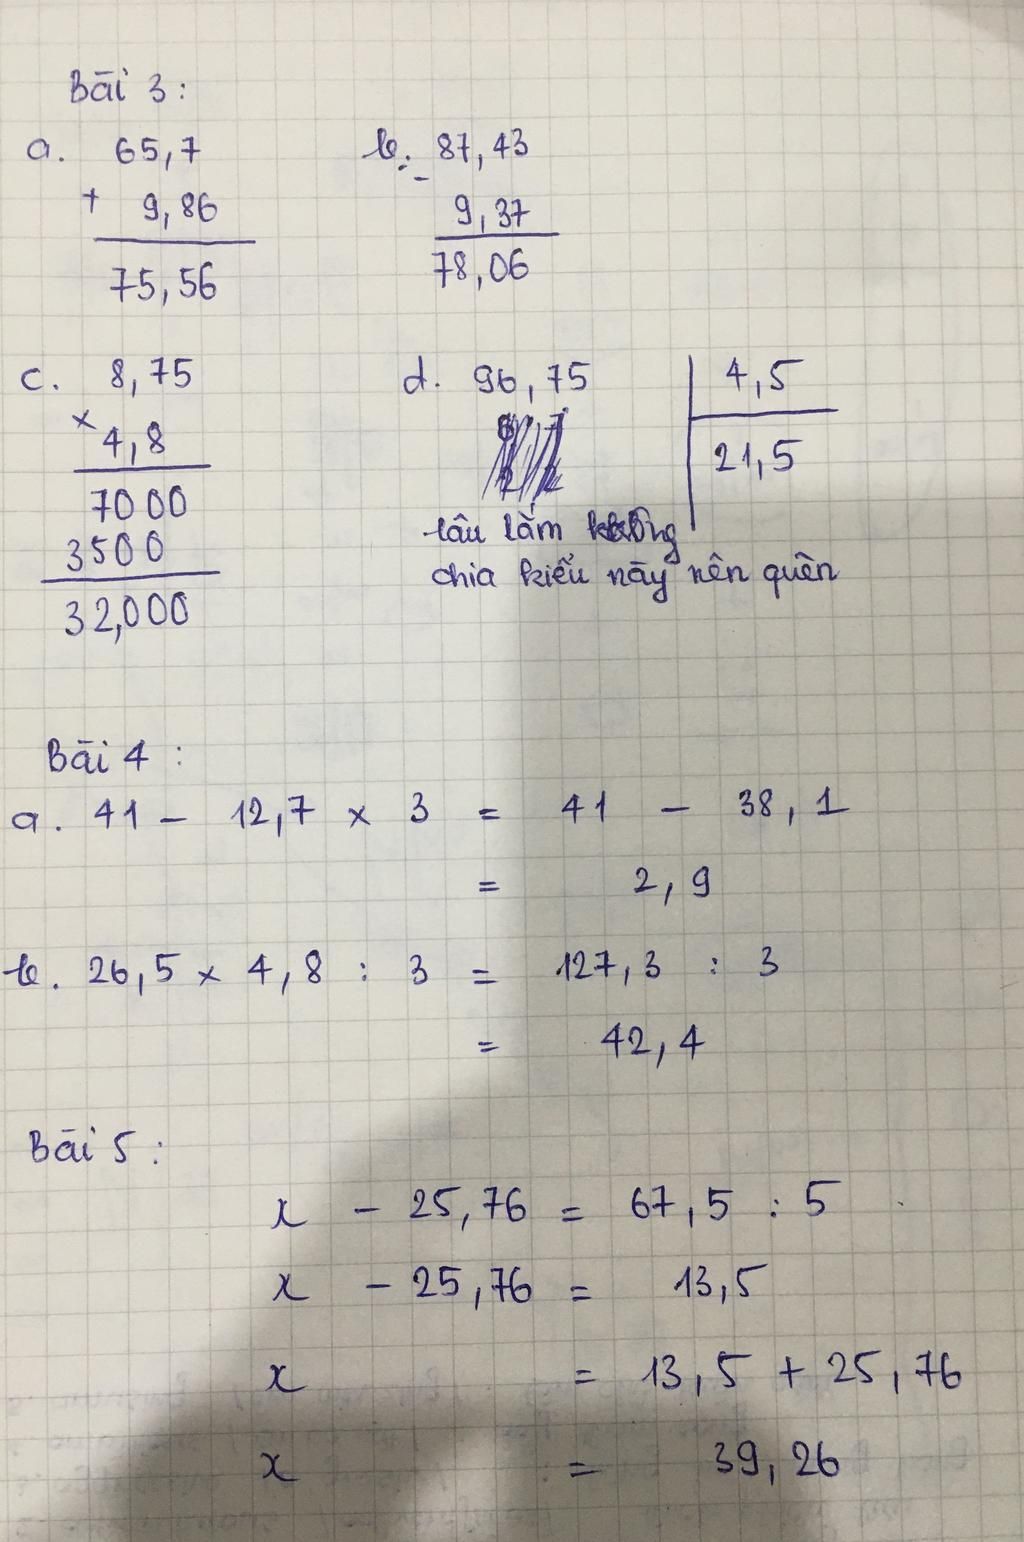 Bài 3:
a. 65,7
+ 9,86
75,56
b. 87,43
- 9,37
78,06
c. 8,75
x 4,8
7000
3500
32,000
d. 96,75 4,5
21,5
lâu lắm không
chia kiểu này nên quên
Bài 4:
a. 41 - 12,7 x 3 = 41 - 38,1
= 2,9
b. 26,5 x 4,8 : 3 = 127,3 : 3
= 42,4
Bài 5:
x - 25,76 = 67,5 : 5
x - 25,76 = 13,5
x = 13,5 + 25,76
x = 39,26